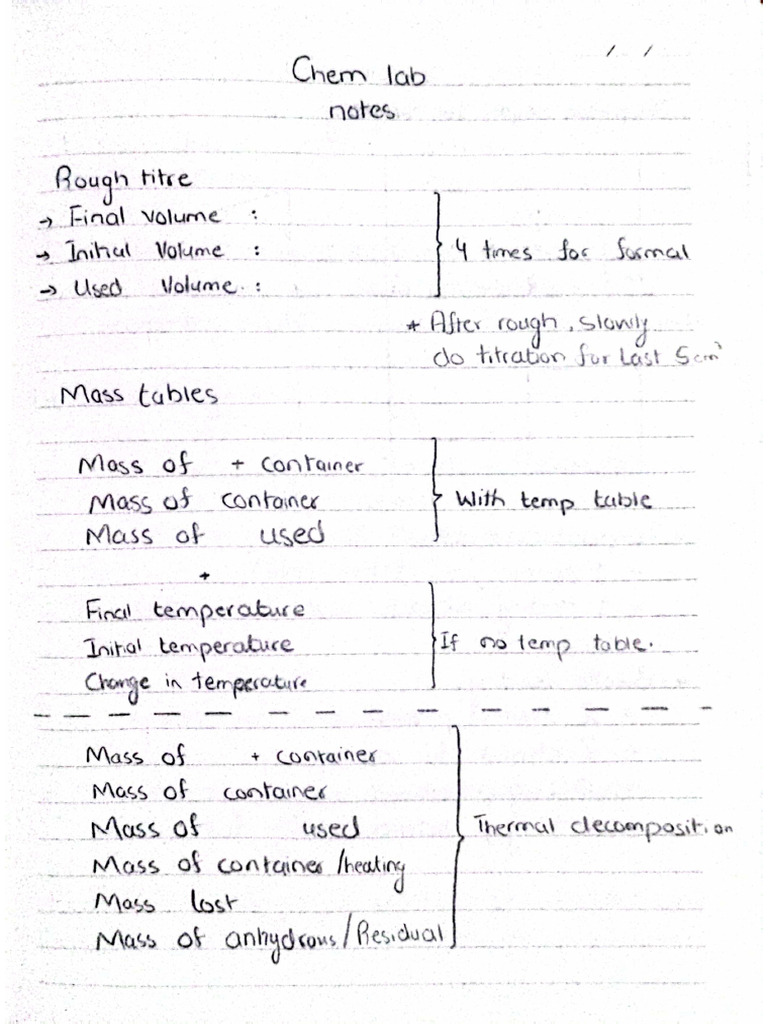 / /
Chem lab
notes
Rough titre
→ Final volume :
→ Initial Volume :
→ Used Volume :
4 times for formal
* After rough, slowly
do titration for Last 5cm³
Mass tables
Mass of + container
Mass of container
Mass of used
With temp table
+
Final temperature
Initial temperature
Change in temperature
If no temp table.
Mass of + container
Mass of container
Mass of used
Mass of container /heating
Mass lost
Mass of anhydrous/Residual
Thermal decomposition